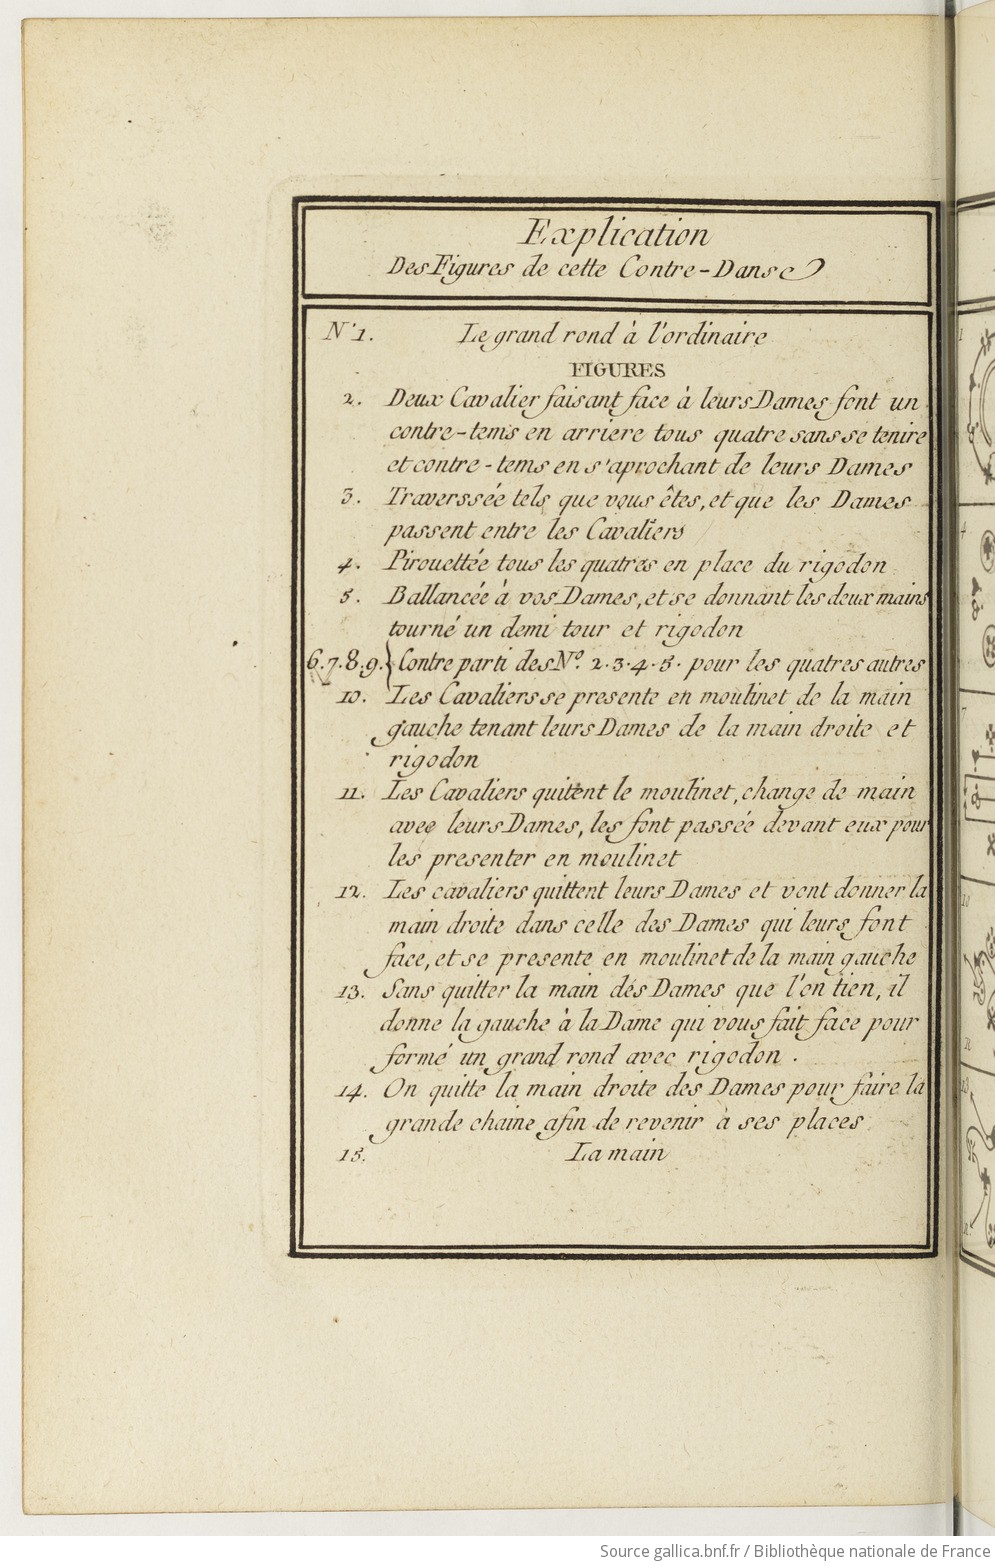 Explication
Des Figures de cette Contre-Danse
N° 1. Le grand rond à l'ordinaire
FIGURES
2. Deux Cavalier faisant face à leurs Dames font un
contre-tems en arriere tous quatre sans se tenire
et contre-tems en s'aprochant de leurs Dames
3. Traverssée tels que vous êtes, et que les Dames
passent entre les Cavaliers
4. Pirouettée tous les quatres en place du rigodon
5. Ballancée à vos Dames, et se donnant les deux mains
tourné un demi tour et rigodon
6.7.8.9.} Contre parti des N°. 2.3.4.5. pour les quatres autres
10. Les Cavaliers se presente en moulinet de la main
gauche tenant leurs Dames de la main droite et
rigodon
11. Les Cavaliers quitent le moulinet, change de main
avec leurs Dames, les font passée devant eux pour
les presenter en moulinet
12. Les cavaliers quittent leurs Dames et vont donner la
main droite dans celle des Dames qui leurs font
face, et se presente en moulinet de la main gauche
13. Sans quitter la main dés Dames que l'on tien, il
donne la gauche à la Dame qui vous fait face pour
formé un grand rond avec rigodon.
14. On quitte la main droite des Dames pour faire la
grande chaine afin de revenir à ses places
15. La main
Source gallica.bnf.fr / Bibliothèque nationale de France